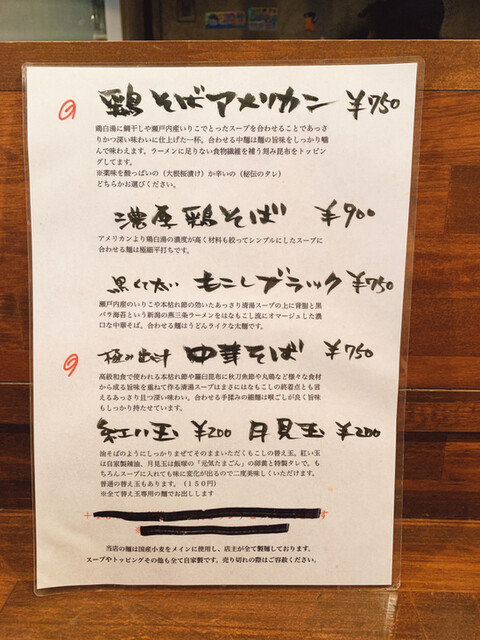 鶏そばアメリカン ¥750
鶏白湯に鯛干しや瀬戸内産いりこでとったスープを合わせることであっさ
りかつ深い味わいに仕上げた一杯。合わせる中麺は麺の旨味をしっかり噛
んで味わえます。ラーメンに足りない食物繊維を補う刻み昆布をトッピン
グしてます。
※薬味を酸っぱいの（大根桜漬け）か辛いの（秘伝のタレ）
どちらかお選びください。
濃厚鶏そば ¥900
アメリカンより鶏白湯の濃度が高く材料も絞ってシンプルにしたスープに
合わせる麺は極細平打ちです。
黒くて太い もこしブラック ¥750
瀬戸内産のいりこや本枯れ節の効いたあっさり清湯スープの上に背脂と黒
バラ海苔という新潟の燕三条ラーメンをはなもこし流にオマージュした濃
口な中華そば。合わせる麺はうどんライクな太麺です。
極み出汁 中華そば ¥750
高級和食で使われる本枯れ節や羅臼昆布に秋刀魚節や丸鶏など様々な食材
から成る旨味を重ねて作る清湯スープはまさにはなもこしの終着点とも言
えるあっさり且つ深い味わい。合わせる手揉みの細麺は喉ごしが良く旨味
もしっかり持たせています。
紅い玉 ¥200 月見玉 ¥200
油そばのようにしっかりまぜてそのままいただくもこしの替え玉。紅い玉
は自家製辣油、月見玉は飯塚の「元気たまごん」の卵黄と特製タレで。も
ちろんスープに入れても味に変化が出るので二度美味しくいただけます。
普通の替え玉もあります。（１５０円）
※全て替え玉専用の麺でお出しします
当店の麺は国産小麦をメインに使用し、店主が全て製麺しております。
スープやトッピングその他も全て自家製です。売り切れの際はご容赦ください。